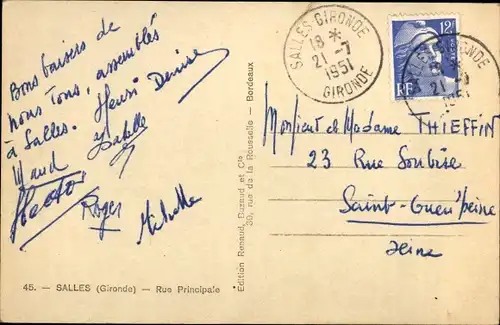 Bons baisers de
nous Tous, assemblés
à Salles. Henri Denise
Maud Isabelle
Hector
Roger Michelle
45. — SALLES (Gironde) — Rue Principale
Edition Renaud, Buzaud et Cie
30, rue de la Rousselle — Bordeaux
SALLES-GIRONDE
18 *
21-7
1951
GIRONDE
12F
RF
18 *
21-7
1951
Monsieur et Madame THIEFFIN
23 Rue Soubise
Saint-Ouen s/Seine
Seine